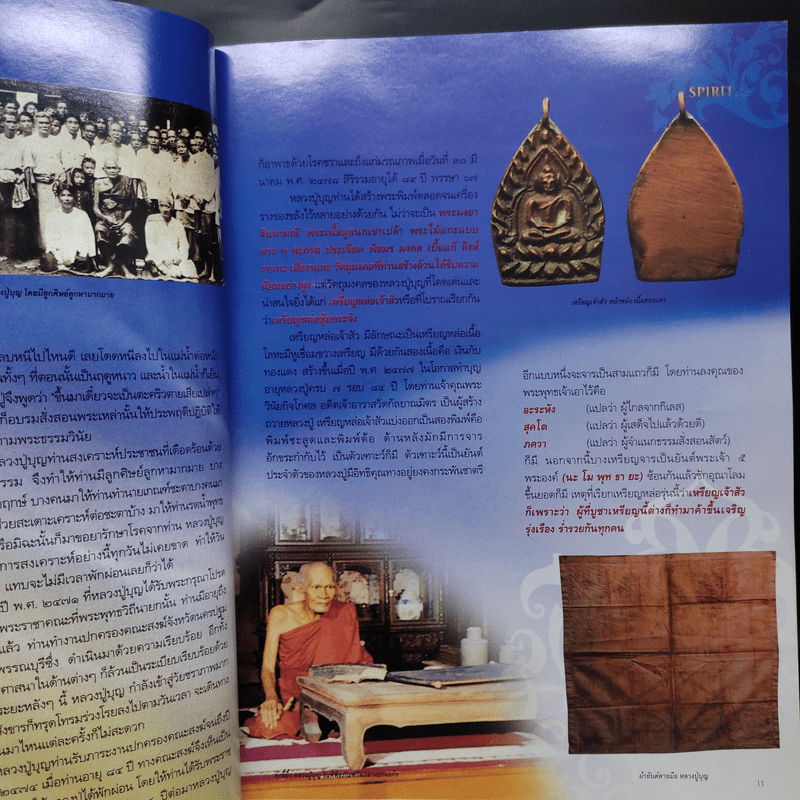 งปู่บุญ โดยมีลูกศิษย์ลูกหามากมาย
ลบหนีไปไหนดี เลยโดดหนีลงไปในแม่น้ำต่อหน้า
ทั้งๆ ที่ตอนนั้นเป็นฤดูหนาว และน้ำในแม่น้ำก็เย็น
ปู่จึงพูดว่า "ขึ้นมาเดี๋ยวจะเป็นตะคริวตายเสียเปล่าๆ"
ก็อบรมสั่งสอนพระเหล่านั้นให้ประพฤติปฏิบัติให้
ามพระธรรมวินัย
ลวงปู่บุญท่านสงเคราะห์ประชาชนที่เดือดร้อนด้วย
รรม จึงทำให้ท่านมีลูกศิษย์ลูกหามากมาย บาง
ฤกษ์ บางคนมาให้ท่านทำนายเกณฑ์ชะตาบางคนเก
ช่วยสะเดาะเคราะห์ต่อชะตาบ้าง มาให้รดน้ำพุทธ
รือมิฉะนั้นก็มาขอยารักษาโรคจากท่าน หลวงปู่
การสงเคราะห์อย่างนี้ทุกวันไม่เคยขาด ทำให้วัน
แทบจะไม่มีเวลาพักผ่อนเลยก็ว่าได้
ปี พ.ศ. ๒๔๗๑ ที่หลวงปู่ได้รับพระกรุณาโปรด
พระราชาคณะที่พระพุทธวิถีนายกนั้น ท่านมีอายุถึง
แล้ว ท่านทำงานปกครองคณะสงฆ์จังหวัดนครปฐม
พรรณบุรีซึ่ง ดำเนินมาด้วยความเรียบร้อย อีกทั้ง
ศาสนาในด้านต่างๆ ก็ล้วนเป็นระเบียบเรียบร้อยด้วย
ระยะหลังๆ นี้ หลวงปู่บุญ กำลังเข้าสู่วัยชราภาพมาก
งขารก็ทรุดโทรมร่วงโรยลงไปตามวันเวลา จะเดินทาง
นมาไหนแต่ละครั้งก็ไม่สะดวก
หลวงปู่บุญท่านรับภาระงานปกครองคณะสงฆ์จนถึงปี
๒๔๗๔ เมื่อท่านอายุ ๘๔ ปี ทางคณะสงฆ์จึงเห็นเป็น
ปู่ได้พักผ่อน โดยให้ท่านได้รับพระราช
ปี ต่อมาหลวงปู่บุญ
SPIREI
ก็อาพาธด้วยโรคชราและถึงแก่มรณภาพเมื่อวันที่ ๓๐ มี
นาคม พ.ศ. ๒๔๗๘ สิริรวมอายุได้ ๘๙ ปี พรรษา ๖๗
หลวงปู่บุญท่านได้สร้างพระพิมพ์ตลอดจนเครื่อง
รางของขลังไว้หลายอย่างด้วยกัน ไม่ว่าจะเป็น พระผงยา
จินดามณี พระเนื้อมูลนกเขาเปล้า พระไม้แกะแบบ
ต่าง ๆ ตะกรุด ประเจียด พิสมร มงคล เบี้ยแก้ สิงห์
งาแกะ เสืองาแกะ วัตถุมงคลที่ท่านสร้างล้วนได้รับความ
นิยมอย่างสูง แต่วัตถุมงคลของหลวงปู่บุญที่โดดเด่นและ
น่าสนใจยิ่งได้แก่ เหรียญหล่อเจ้าสัวหรือที่โบราณเรียกกัน
ว่าเหรียญหล่อซุ้มกระจัง
เหรียญหล่อเจ้าสัว มีลักษณะเป็นเหรียญหล่อเนื้อ
โลหะมีหูเชื่อมขวางเหรียญ มีด้วยกันสองเนื้อคือ เงินกับ
ทองแดง สร้างขึ้นเมื่อปี พ.ศ. ๒๔๗๗ ในโอกาสทำบุญ
อายุหลวงปู่ครบ ๗ รอบ ๘๔ ปี โดยท่านเจ้าคุณพระ
วินัยกิจโกศล อดีตเจ้าอาวาสวัดกัลยาณมิตร เป็นผู้สร้าง
ถวายหลวงปู่ เหรียญหล่อเจ้าสัวแบ่งออกเป็นสองพิมพ์คือ
พิมพ์ชะลูดและพิมพ์ต้อ ด้านหลังมักมีการจาร
อักขระกำกับไว้ เป็นตัวเฑาะว์ก็มี ตัวเฑาะว์นี้เป็นยันต์
ประจำตัวของหลวงปู่มีอิทธิคุณทางอยู่ยงคงกระพันชาตรี
เหรียญเจ้าสัว หน้าหลัง เนื้อทองแดง
อีกแบบหนึ่งจะจารเป็นสามแถวก็มี โดยท่านลงคุณของ
พระพุทธเจ้าเอาไว้คือ
อะระหัง (แปลว่า ผู้ไกลจากกิเลส)
สุคโต (แปลว่า ผู้เสด็จไปแล้วด้วยดี)
ภควา (แปลว่า ผู้จำแนกธรรมสั่งสอนสัตว์)
ก็มี นอกจากนี้บางเหรียญจารเป็นยันต์พระเจ้า ๕
พระองค์ (นะ โม พุท ธา ยะ) ซ้อนกันแล้วชักอุณาโลม
ขึ้นยอดก็มี เหตุที่เรียกเหรียญหล่อรุ่นนี้ว่าเหรียญเจ้าสัว
ก็เพราะว่า ผู้ที่บูชาเหรียญนี้ต่างก็ทำมาค้าขึ้นเจริญ
รุ่งเรือง ร่ำรวยกันทุกคน
ผ้ายันต์ลายมือ หลวงปู่บุญ
11